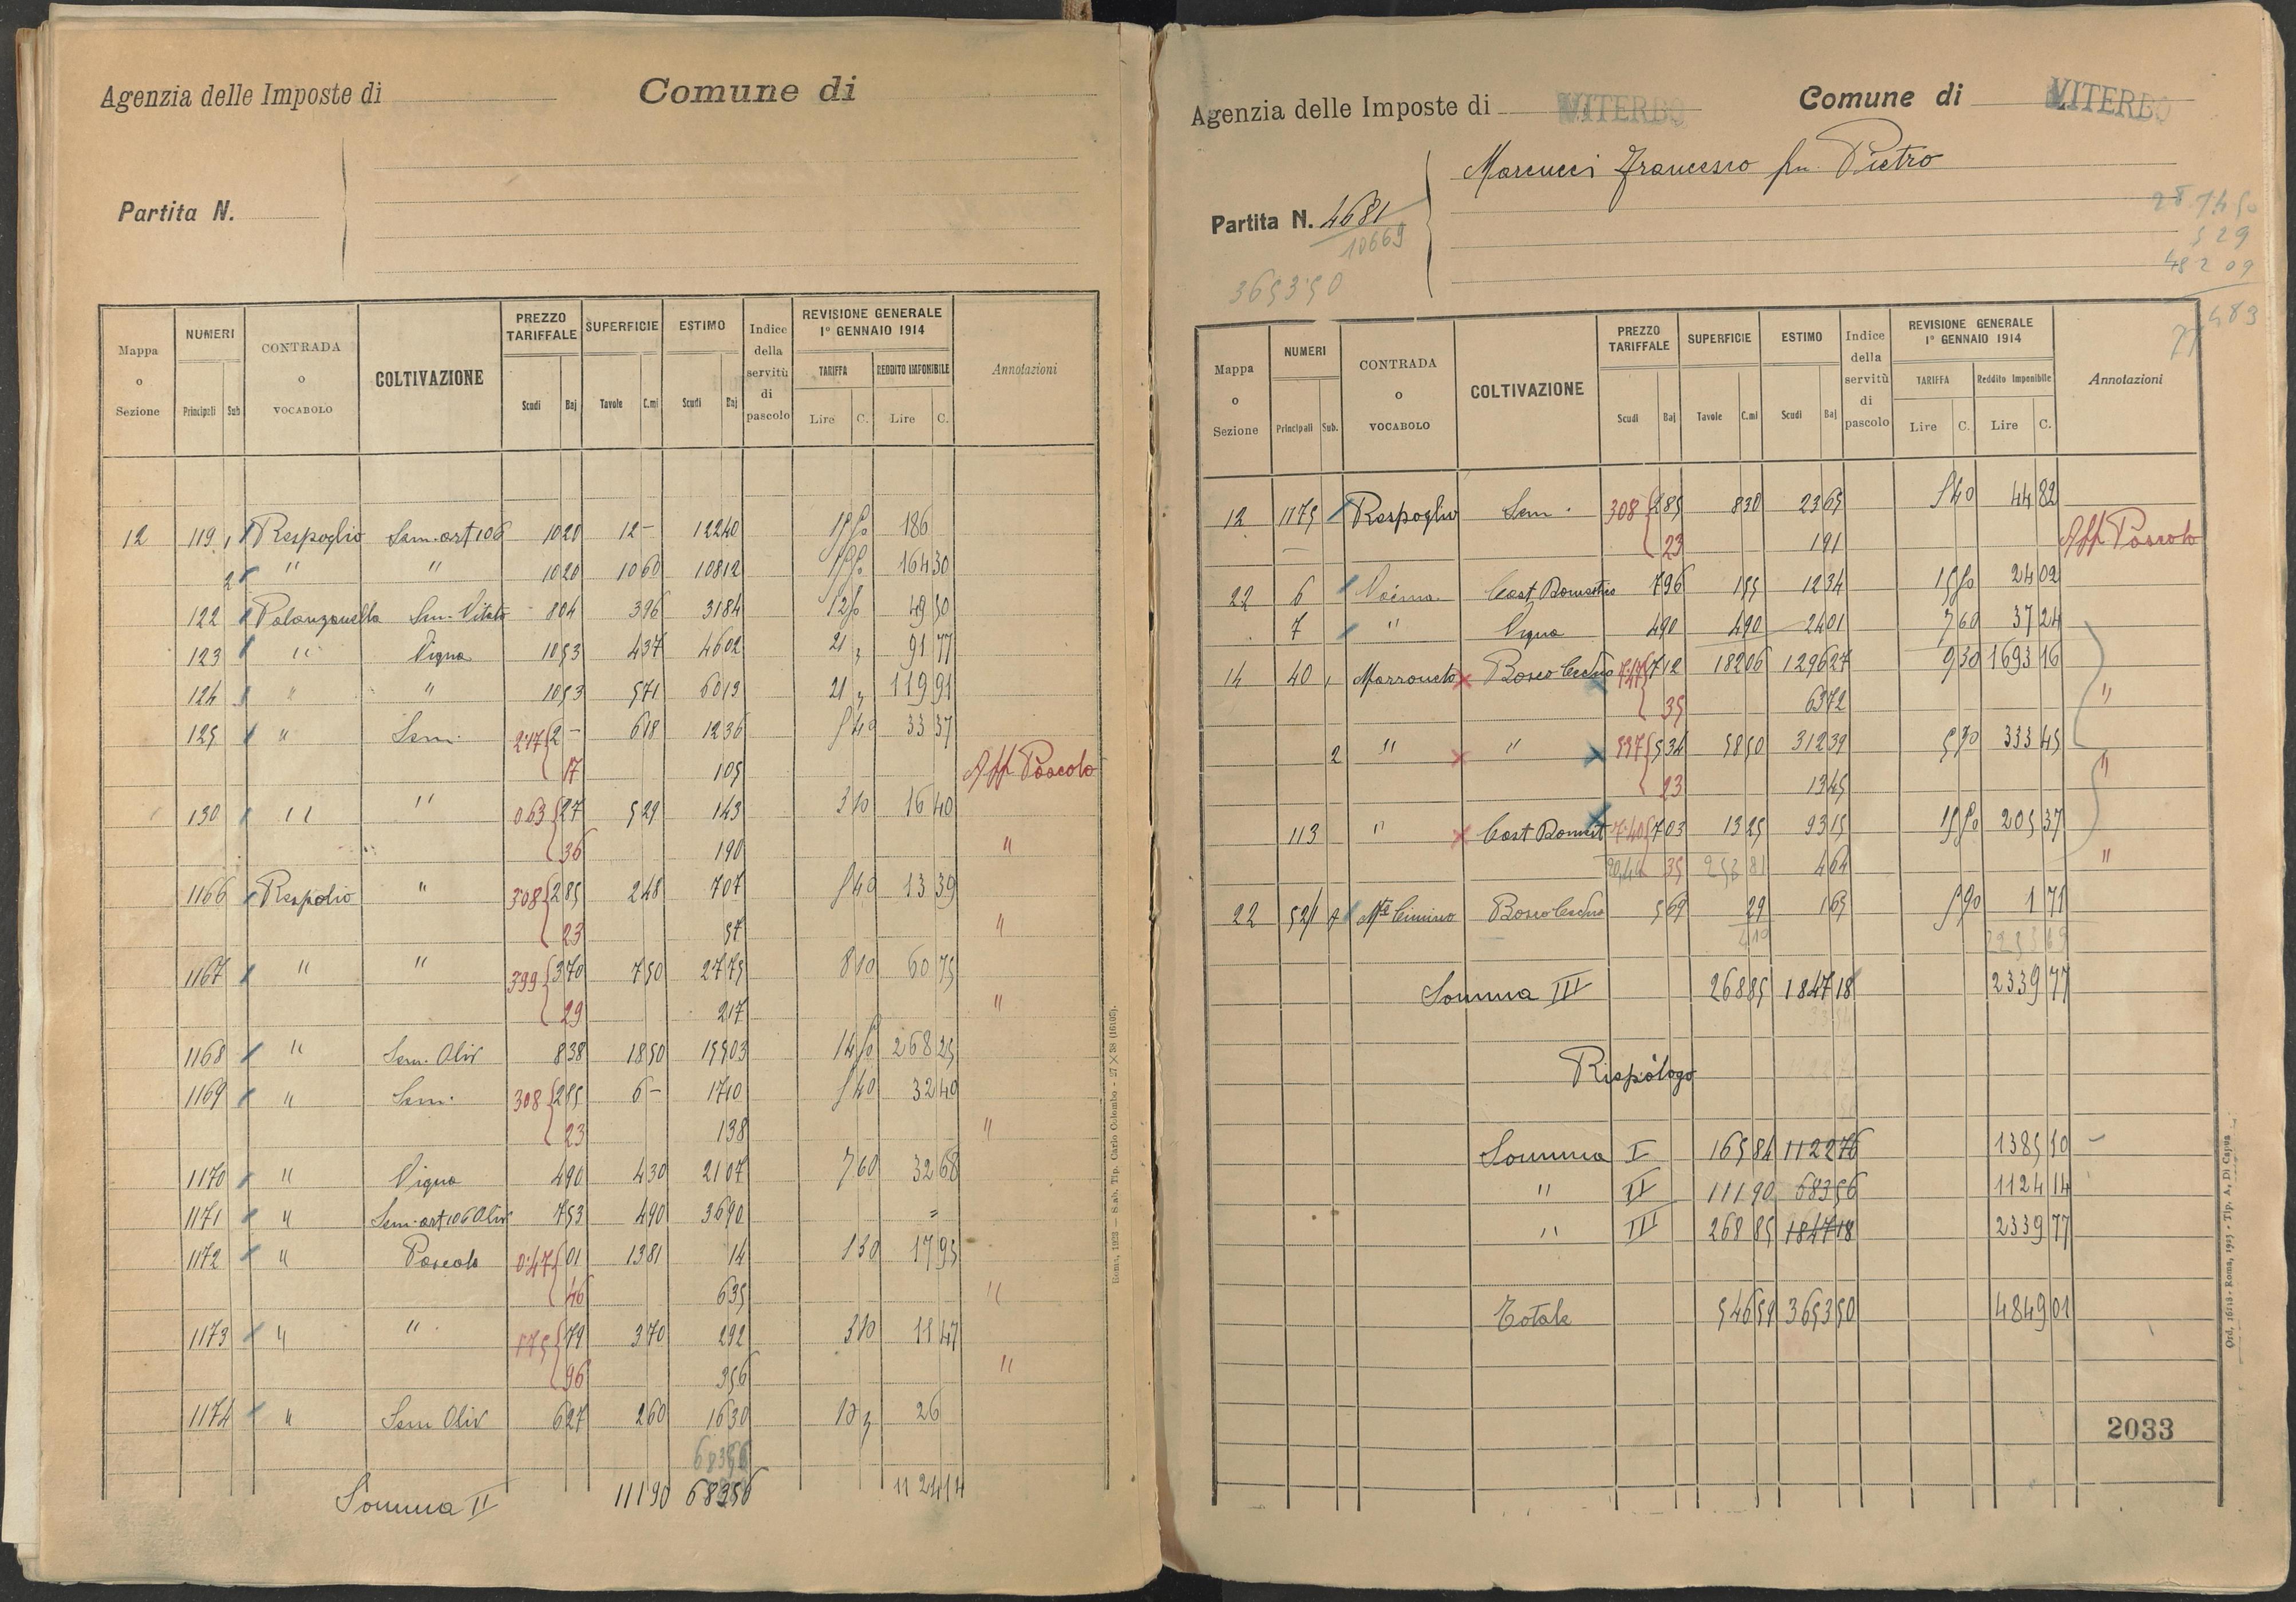 Agenzia delle Imposte di
Comune di
Partita N.
Mappa o Sezione | NUMERI Principali Sub | CONTRADA o VOCABOLO | COLTIVAZIONE | PREZZO TARIFFALE Scudi Baj | SUPERFICIE Tavole C.mi | ESTIMO Scudi Baj | Indice della servitù di pascolo | REVISIONE GENERALE 1° GENNAIO 1914 TARIFFA Lire C. REDDITO IMPONIBILE Lire C. | Annotazioni
12 119 1 Respoglio Sem. art 106 10 20 12 - 122 40 186
2 " " 10 20 10 60 108 12 164 30
122 Palanzanella Sem. Vitato 8 04 3 96 31 84 12 50 49 50
123 " Vigna 10 53 4 37 46 02 21 , 91 77
124 " " 10 53 5 71 60 13 21 , 119 91
125 " Sem. 2.17 2 - 6 18 12 36 5 40 33 37
17 1 05 Aff Pascolo
130 " " 0.63 27 5 29 1 43 3 10 16 40
36 1 90 "
1166 Respolio " 3.08 2 85 2 48 7 07 5 40 13 39
23 57 "
1167 " " 3 99 3 70 7 50 27 75 8 10 60 75
29 2 17 "
1168 " Sem. Oliv 8 38 18 50 155 03 14 50 268 25
1169 " Sem. 3.08 2 85 6 - 17 10 5 40 32 40
23 1 38 "
1170 " Vigna 4 90 4 30 21 07 7 60 32 68
1171 " Sem. art 106 Oliv 7 53 4 90 36 90 =
1172 " Pascolo 0.47 01 13 81 14 1 30 17 95
46 6 35 "
1173 " " 1 75 79 3 70 2 92 3 10 11 47
96 3 56 "
1174 " Sem Oliv 6 27 2 60 16 30 10 , 26
683 56
Somma II 111 90 683 56 1124 14
Roma, 1923 — Stab. Tip. Carlo Colombo - 27 × 38 (16105).
Agenzia delle Imposte di VITERBO
Comune di VITERBO
Marcucci Francesco fu Pietro
Partita N. 4681
10669
3653.50
5 29
48 2 09
Mappa o Sezione | NUMERI Principali Sub. | CONTRADA o VOCABOLO | COLTIVAZIONE | PREZZO TARIFFALE Scudi Baj | SUPERFICIE Tavole C.mi | ESTIMO Scudi Baj | Indice della servitù di pascolo | REVISIONE GENERALE 1° GENNAIO 1914 TARIFFA Lire C. Reddito Imponibile Lire C. | Annotazioni
12 1175 Respoglio Sem. 308 2 85 8 30 23 65 5 40 44 82
23 1 91 Aff Pascolo
22 6 Cast Domestico 7 96 1 55 12 34 15 50 24 02
7 " Vigna 4 90 4 90 24 01 7 60 37 24
14 40 1 Marroneto Bosco Ceduo 7.47 7 12 182 06 1296 27 9 30 1693 16
35 63 72 "
2 " " 5 57 5 34 58 50 312 39 5 70 333 45
23 13 45 "
113 " Cast Domest 7.40 7 03 13 25 93 15 15 50 205 37
20,44 35 253 81 4 64 "
22 52/1 M.te Cimino Bosco Ceduo 5 69 29 1 65 5 90 1 71
Somma III 268 85 1847 18 2339 77
Riepilogo
Somma I 165 84 1122 76 1385 10 -
" II 111 90 683 56 1124 14
" III 268 85 1847 18 2339 77
Totale 546 59 3653 50 4849 01
2033
Ord. 16118 - Roma, 1925 - Tip. A. Di Capua